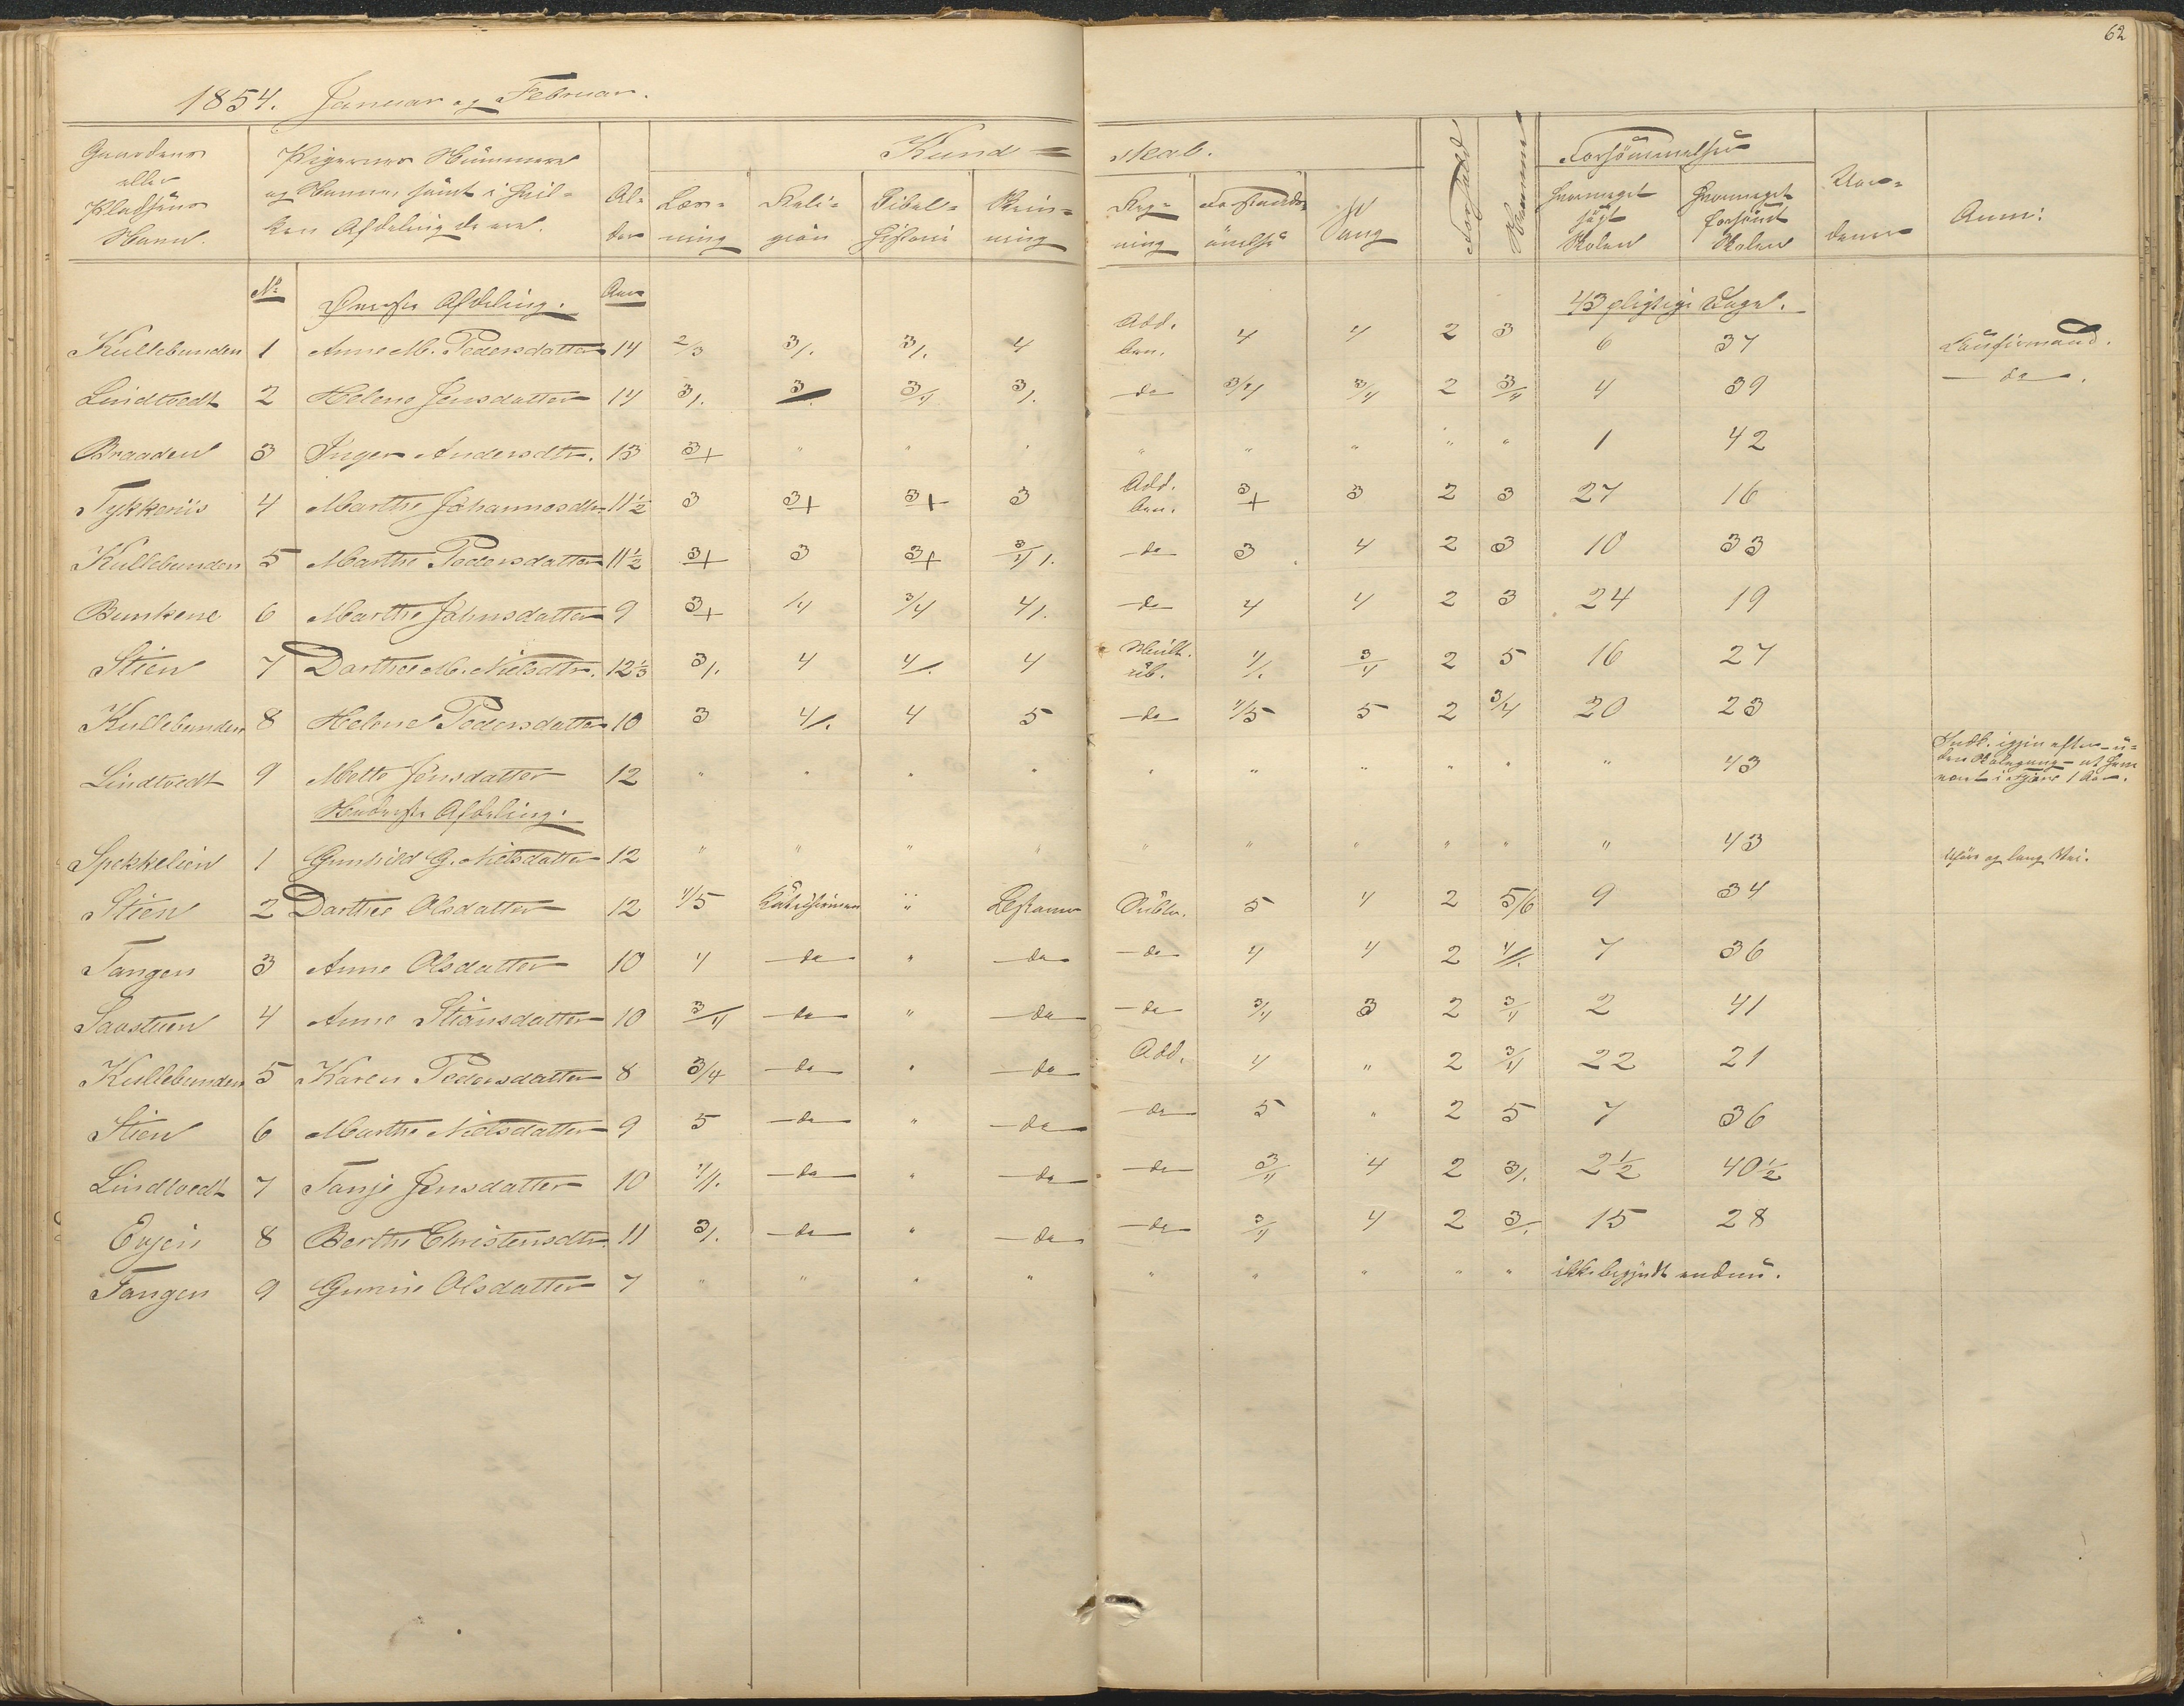 62
1854. Januar og Februar.
Gaardens eller Pladsens Navn. | Pigernes Nummere og Navne, samt i hvilken Afdeling de ere. | Alder | Kundskab. | Forhold | Nemme | Forsömmelser | Anm:
Læsning | Religion | Bibelhistorie | Skrivning | Regning | Forstandsövelse | Sang | hvormeget sögt Skolen | hvormeget forsömt Skolen
No | Øverste Afdeling. | Aar | 43 pligtige Dage.
Kullebunden 1 Anne M. Pedersdatter 14 2/3 3/. 3/. 4 Add. ben. 4 4 2 3 6 37 Confirmand.
Lindtvedt 2 Helene Jensdatter 14 3/. 3/. 3/4 3/. do 3/4 3/4 2 3/4 4 39 do.
Braaden 3 Inger Andersdtr. 13 3+ " " " " " " " " 1 42
Tykkeriis 4 Marthe Johannesdtr. 11½ 3 3+ 3+ 3 Add. ben. 3+ 3 2 3 27 16
Kullebunden 5 Marthe Pedersdatter 11½ 3+ 3 3+ 3/4/. do 3 4 2 3 10 33
Bunkene 6 Marthe Johnsdatter 9 3+ /4 3/4 4/. do 4 4 2 3 24 19
Stien 7 Dorthee M. Nielsdtr. 12⅓ 3/. 4 4/. 4 Mult. ub. 4/. 3/4 2 5 16 27
Kullebunden 8 Helene Pedersdatter 10 3 4/. 4 5 do 4/5 5 2 3/4 20 23
Lindtvedt 9 Mette Jensdatter 12 " " " " " " " " " " 43
Nederste Afdeling.
Spekkelien 1 Gunhild G. Nielsdatter 12 " " " " " " " " " " 43 og lang Vei.
Stien 2 Dorthee Olsdatter 12 4/5 Katechismen " Bogstaver Subtr. 5 4 2 5/6 9 34
Tangen 3 Anne Olsdatter 10 4 do " do do 4 4 2 4/. 7 36
Saastuen 4 Anne Stiansdatter 10 3/4 do " do do 3/4 3 2 3/4 2 41
Kullebunden 5 Karen Pedersdatter 8 3/4 do " do Add. 4 " 2 3/4 22 21
Stien 6 Marthe Nielsdatter 9 5 do " do do 5 " 2 5 7 36
Lindtvedt 7 Tanje Jensdatter 10 4/. do " do do 3/4 4 2 3/. 2½ 40½
Evjen 8 Berthe Christensdtr. 11 3/. do " do do 3/4 4 2 3/. 15 28
Tangen 9 Gunne Olsdatter 7 " " " " " " " " " ikke begyndt endnu.